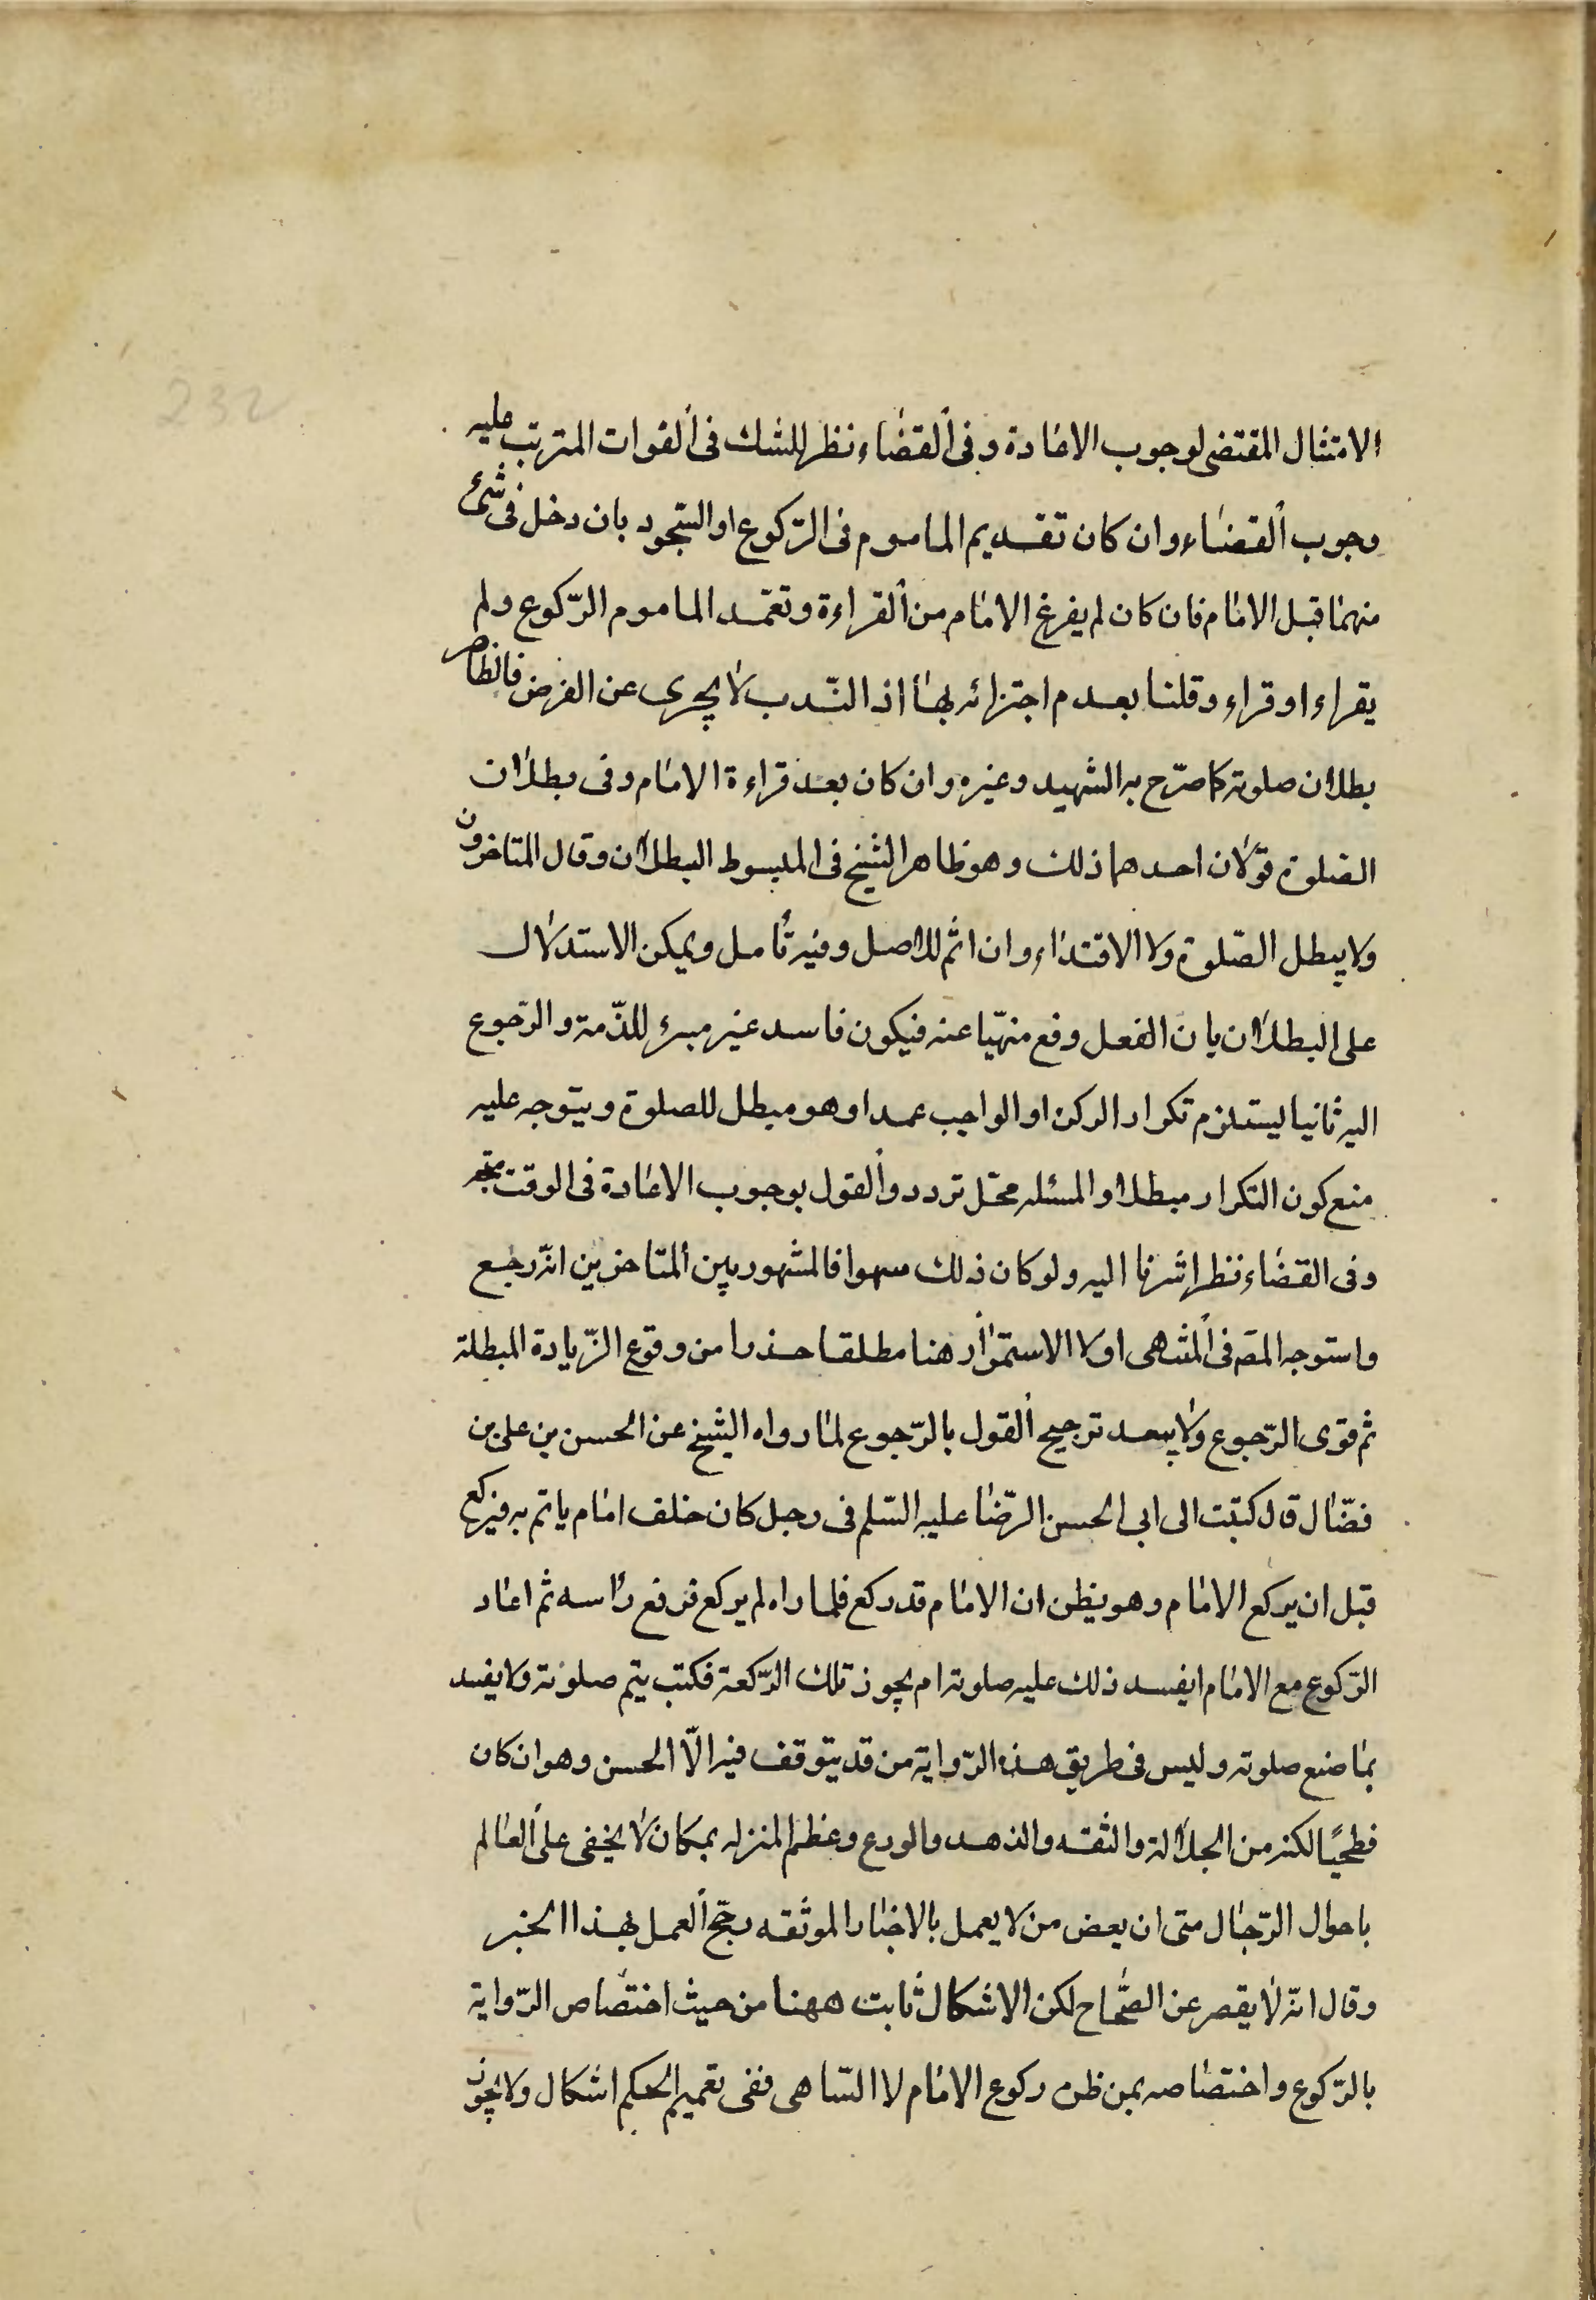 232
الامتثال المقتضى لوجوب الاعادة وفى القضاء نظر للشك فى الفوات المترتب عليه
وجوب القضاء وان كان تقديم الماموم فى الرّكوع او السّجود بان دخل فى شئ
منهما قبل الامام فان كان لم يفرغ الامام من القراءة وتعمّد الماموم الرّكوع ولم
يقراء او قراء وقلنا بعدم اجتزائه بها اذ النّدب لا يجرى عن الفرض فالظاهر
بطلان صلوته كما صرّح به الشهيد وغيره وان كان بعد قراءة الامام وفى بطلان
الصّلوة قولان احدهما ذلك وهو ظاهر الشيخ فى المبسوط البطلان وقال المتاخرون
ولا يبطل الصّلوة ولا الاقتداء وان اثم للاصل وفيه تأمل ويمكن الاستدلال
على البطلان بان الفعل وقع منهيّا عنه فيكون فاسد غير مبرء للذّمة والرّجوع
اليه ثانيا ليستلزم تكرار الركن او الواجب عمدا وهو مبطل للصلوة ويتوجه عليه
منع كون التكرار مبطلا والمسئله محّل تردد والقول بوجوب الاعادة فى الوقت متجه
وفى القضاء نظر اشرنا اليه ولو كان ذلك سهوا فالمشهور بين المتاخرين انّه رجع
واستوجه المصّ فى المنتهى اولا الاستمرار هنا مطلقا حذرا من وقوع الزّيادة المبطلة
ثم قوى الرّجوع ولا يبعد ترجيح القول بالرّجوع لما رواه الشيخ عن الحسن بن على بن
فضّال قال كتبت الى ابى الحسن الرّضا عليه السّلم فى رجل كان خلف امام ياتم به فيركع
قبل ان يركع الامام وهو يظن ان الامام قد ركع فلما راه لم يركع فرفع رأسه ثم اعاد
الرّكوع مع الامام ايفسد ذلك عليه صلوته ام يجوز تلك الرّكعة فكتب يتم صلوته ولا يفسد
بما صنع صلوته وليس فى طريق هذه الرّواية من قد يتوقف فيه الّا الحسن وهو ان كان
فطحيّا لكنه من الجلالة والثقه والذهد والورع وعظم المنزله بمكان لا يخفى على العالم
باحوال الرّجال متى ان بعض من لا يعمل بالاخبار الموثقه رجّح العمل بهذا الخبر
وقال انّه لا يقصر عن الصّحاح لكن الاشكال ثابت ههنا من حيث اختصاص الرّواية
بالرّكوع واختصاصه بمن ظن ركوع الامام لا السّاهى ففى تعميم الحكم اشكال ولا يجوز